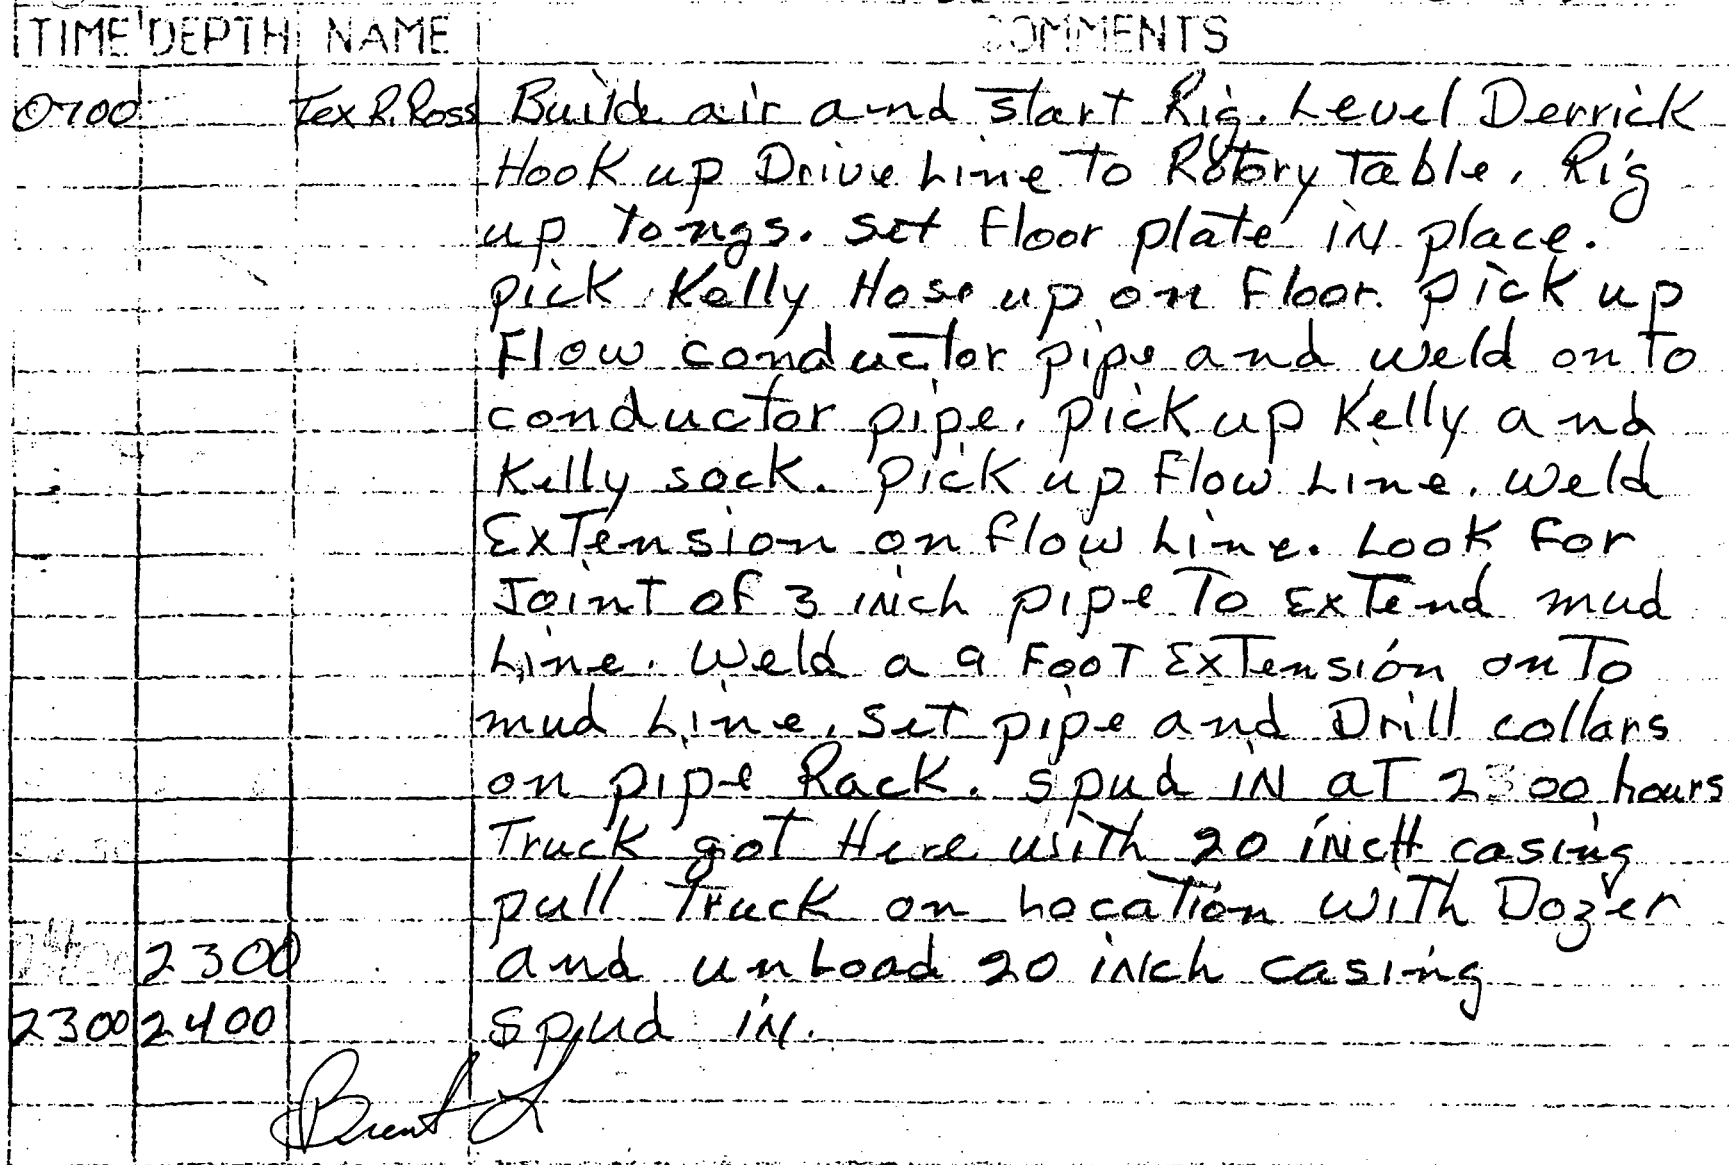 TIME DEPTH NAME COMMENTS
0700 Tex R. Ross Build air and start Rig. Level Derrick
Hook up Drive Line To Rotory Table. Rig
up Tongs. Set Floor plate in place.
pick Kelly Hose up on Floor. pick up
Flow conductor pipe and weld on To
conductor pipe. pick up Kelly and
Kelly sock. pick up Flow Line. Weld
Extension on flow Line. Look For
Joint of 3 inch pipe To Extend mud
Line. Weld a 9 Foot Extension on To
mud Line. Set pipe and Drill collars
on pipe Rack. spud in at 2300 hours
Truck got Here with 20 inch casing
pull Truck on Location with Dozer
2300 and unload 20 inch casing
2300 2400 spud in.
Brent L